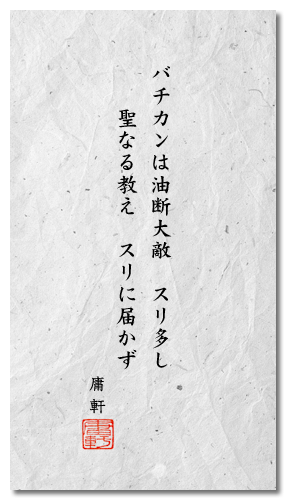 バチカンは油断大敵　スリ多し
聖なる教え　スリに届かず
庸軒
庸軒